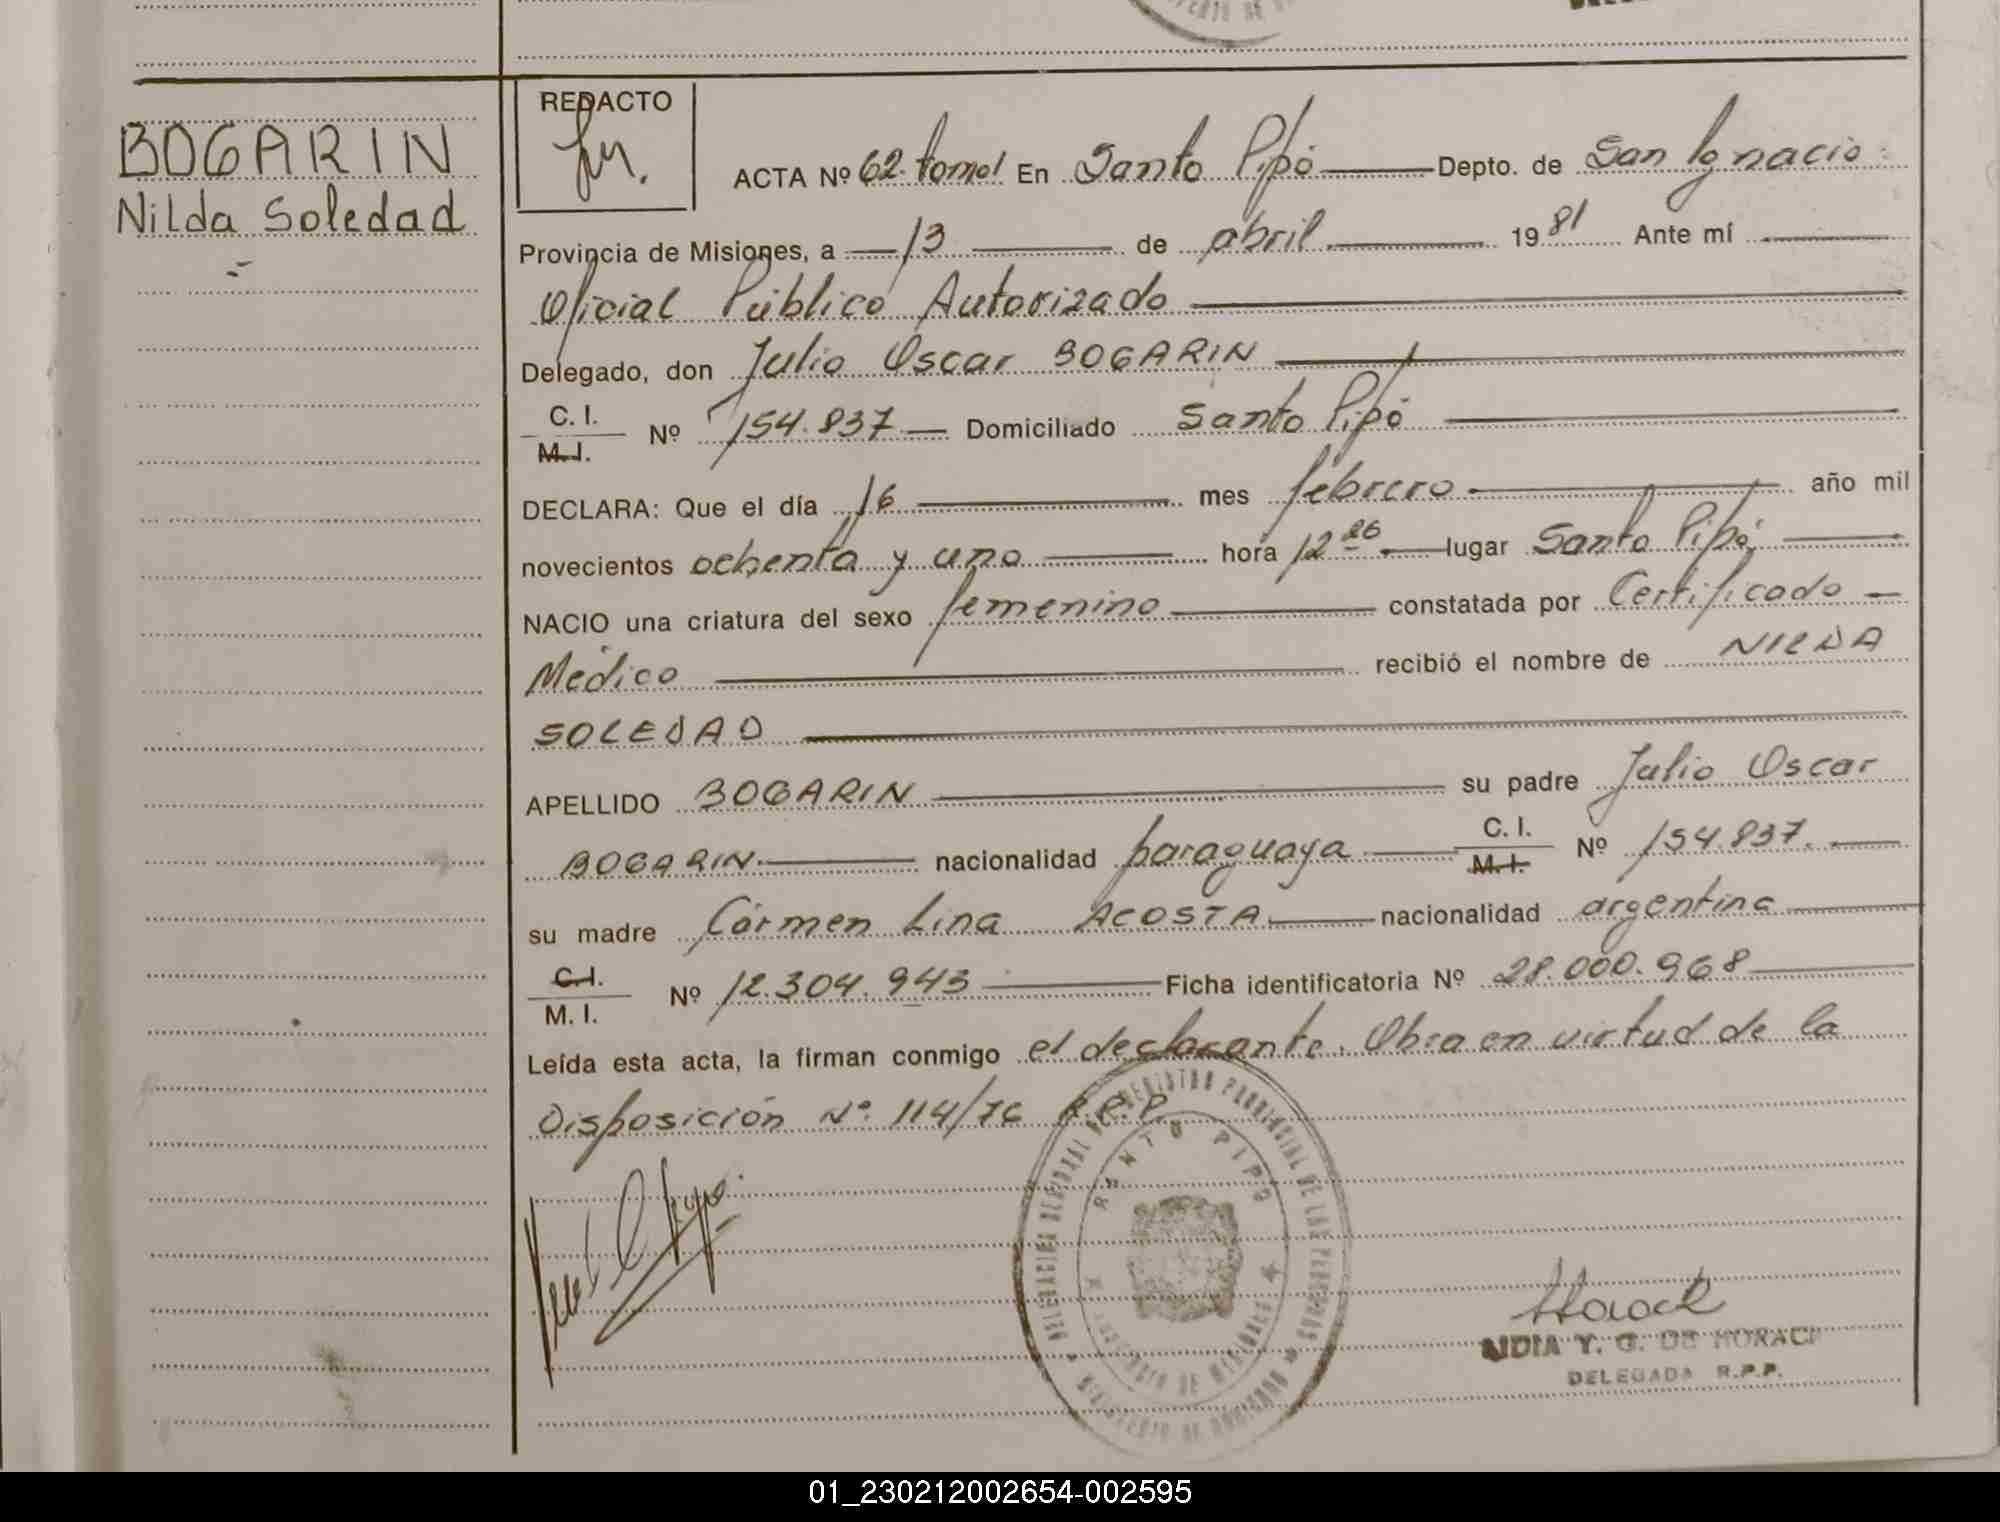 BOGARIN
Nilda Soledad
REDACTO
ACTA Nº 62. tomo I En Santo Pipó Depto. de San Ignacio
Provincia de Misiones, a 13 de abril 1981 Ante mí
Oficial Público Autorizado
Delegado, don Julio Oscar BOGARIN
C. I.
M. I. Nº 154.837 Domiciliado Santo Pipó
DECLARA: Que el día 16 mes febrero año mil
novecientos ochenta y uno hora 12 26 lugar Santo Pipó,
NACIO una criatura del sexo femenino constatada por Certificado
Médico recibió el nombre de NILDA
SOLEDAD
APELLIDO BOGARIN su padre Julio Oscar
BOGARIN. nacionalidad paraguaya C. I.
M. I. Nº 154.837.
su madre Cármen Lina ACOSTA nacionalidad argentina
C. I.
M. I. Nº 12.304.943 Ficha identificatoria Nº 28.000.968
Leída esta acta, la firman conmigo el declarante. Obra en virtud de la
Disposición Nº 114/76 R.P.P.
DELEGACION REGISTRO PROVINCIAL DE LAS PERSONAS
SANTO PIPO
PROVINCIA DE MISIONES
MINISTERIO DE GOBIERNO
NIDIA Y. G. DE HORACK
DELEGADA R.P.P.
01_230212002654-002595